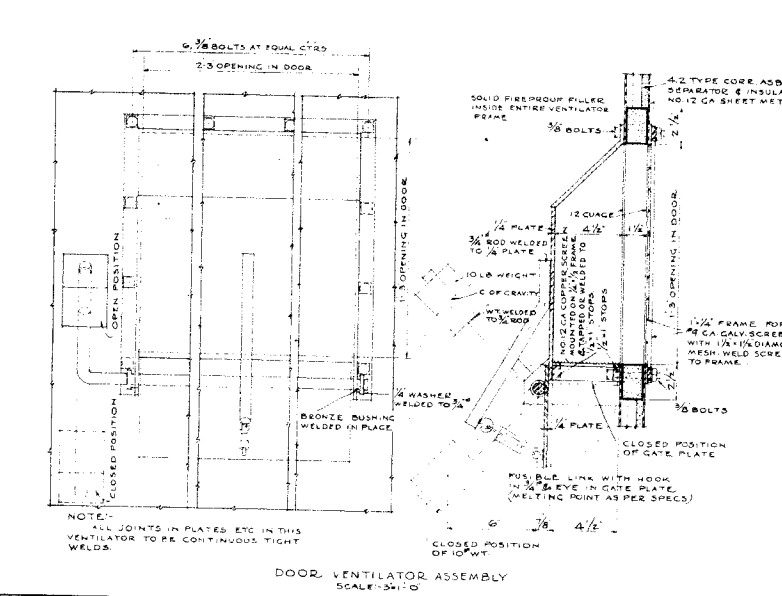 6, 3/8 BOLTS AT EQUAL CTRS
2-3 OPENING IN DOOR
OPEN POSITION
CLOSED POSITION
1-3 OPENING IN DOOR
1/4 WASHER
WELDED TO 3/4"ø
BRONZE BUSHING
WELDED IN PLACE
NOTE:-
ALL JOINTS IN PLATES ETC IN THIS
VENTILATOR TO BE CONTINUOUS TIGHT
WELDS.
SOLID FIREPROOF FILLER
INSIDE ENTIRE VENTILATOR
FRAME
3/8 BOLTS
4.2 TYPE CORR. ASB
SEPARATOR & INSULA
NO. 12 GA SHEET MET
2 1/2
12 GUAGE
4 1/2"
1 1/2
1/4 PLATE
3/4 ROD WELDED
TO 1/4 PLATE
10 LB WEIGHT
C OF GRAVITY
WT. WELDED
TO 3/4 ROD
NO. 12 GA COPPER SCREE
MOUNTED ON
FRAME
TAPPED OR WELDED TO
1/2"x1 STOPS
1/2"x1 STOPS
1-3 OPENING IN DOOR
FRAME FOR
#9 GA. GALV. SCREE
WITH 1 1/2 x 1 1/2 DIAMO
MESH. WELD SCRE
TO FRAME.
2 1/2
3/8 BOLTS
1/4 PLATE
CLOSED POSITION
OF GATE PLATE
FUSIBLE LINK WITH HOOK
IN 3/4"ø & EYE IN GATE PLATE
(MELTING POINT AS PER SPECS)
6" 7/8 4 1/2"
CLOSED POSITION
OF 10# WT.
DOOR VENTILATOR ASSEMBLY
SCALE:-3"=1'-0"